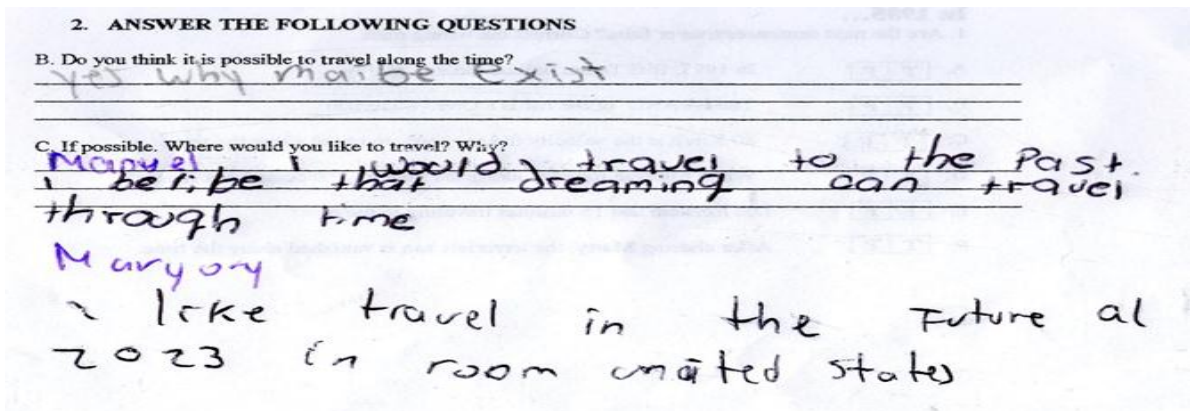 2. ANSWER THE FOLLOWING QUESTIONS
B. Do you think it is possible to travel along the time?
yes why maibe exist
C. If possible. Where would you like to travel? Why?
Manuel I would travel to the Past.
I beribe that dreaming can travel
through time
Maryory
I like travel in the Future al
2023 in room united states